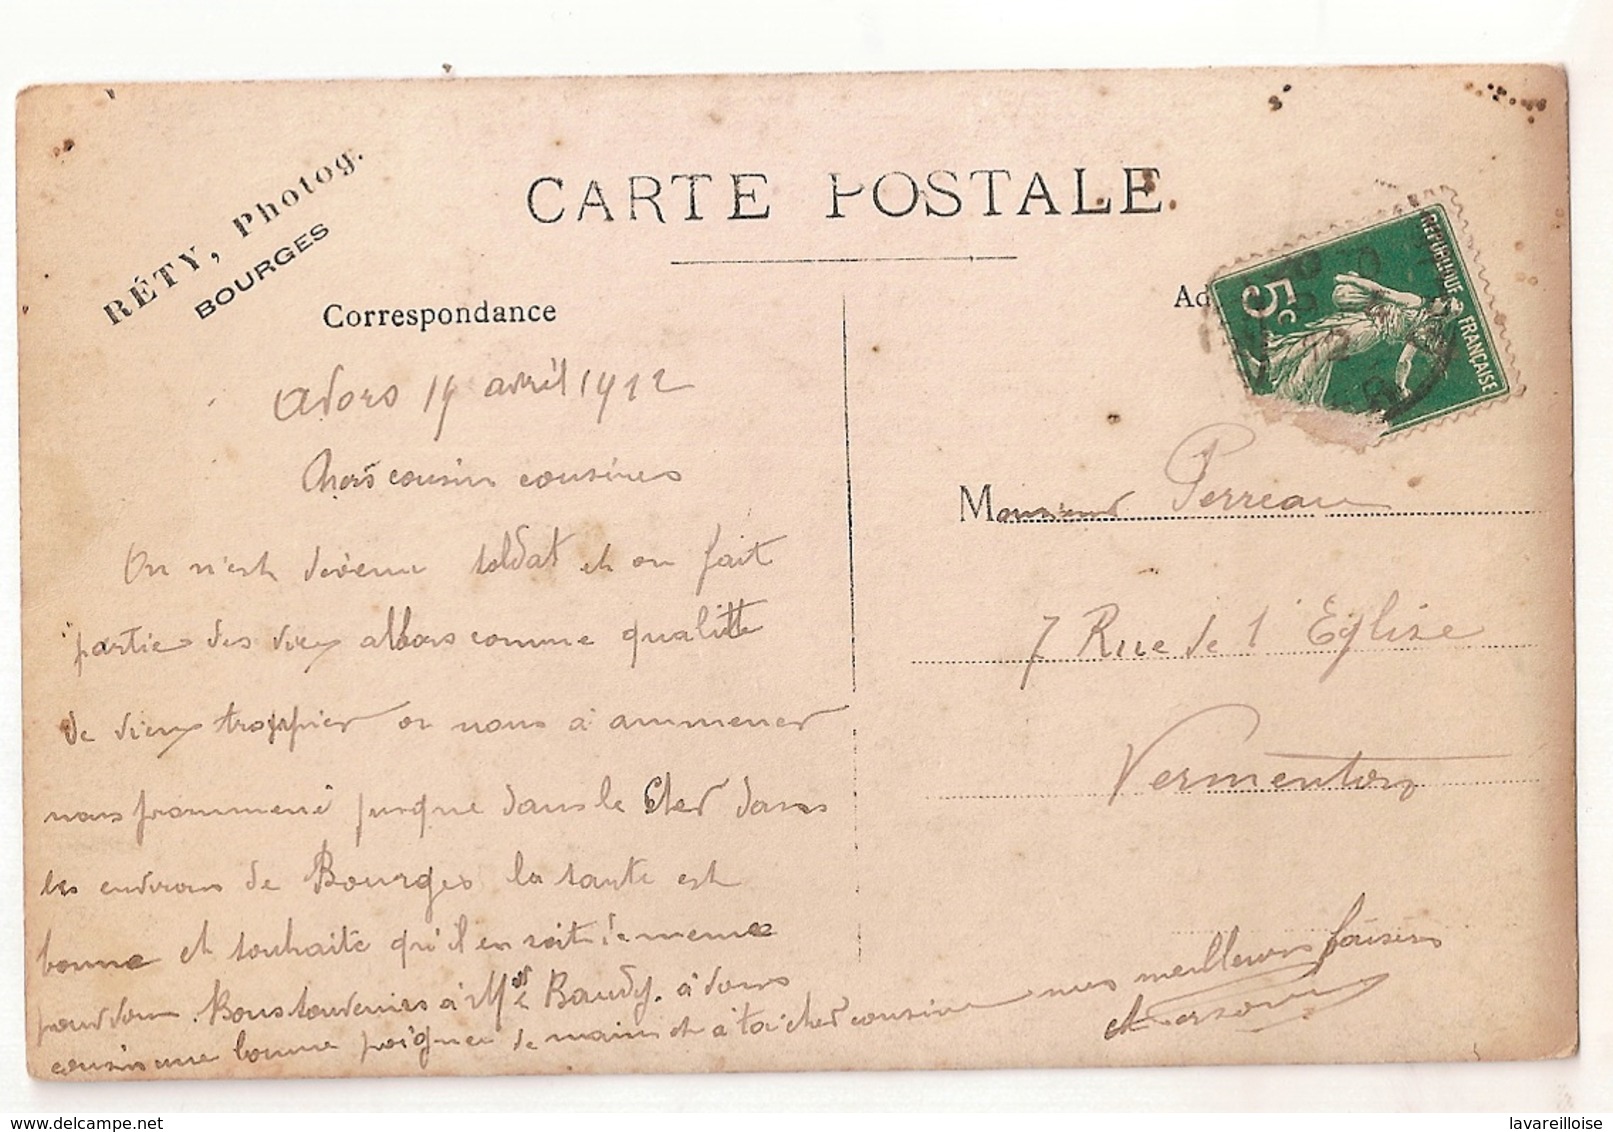 RÉTY, Photog.
BOURGES
CARTE POSTALE
Correspondance
Ad
REPUBLIQUE FRANÇAISE
5c
Avors 14 avril 1912
Chers cousin cousines
On n'est devenu soldat et on fait
partie des vieux alors comme qualitte
de vieux troupier on nous à ammener
nous prommené jusque dans le Cher dans
les environs de Bourges la sante est
bonne et souhaite qu'il en soit de meme
pour vous. Bons souvenirs à Mr Baudy. à vous
cousin une bonne poignee de main et à toi cher cousine mes meilleurs baisers
Monsieur Perreau
7 Rue de l'Eglise
Vermenton
lavareilloise